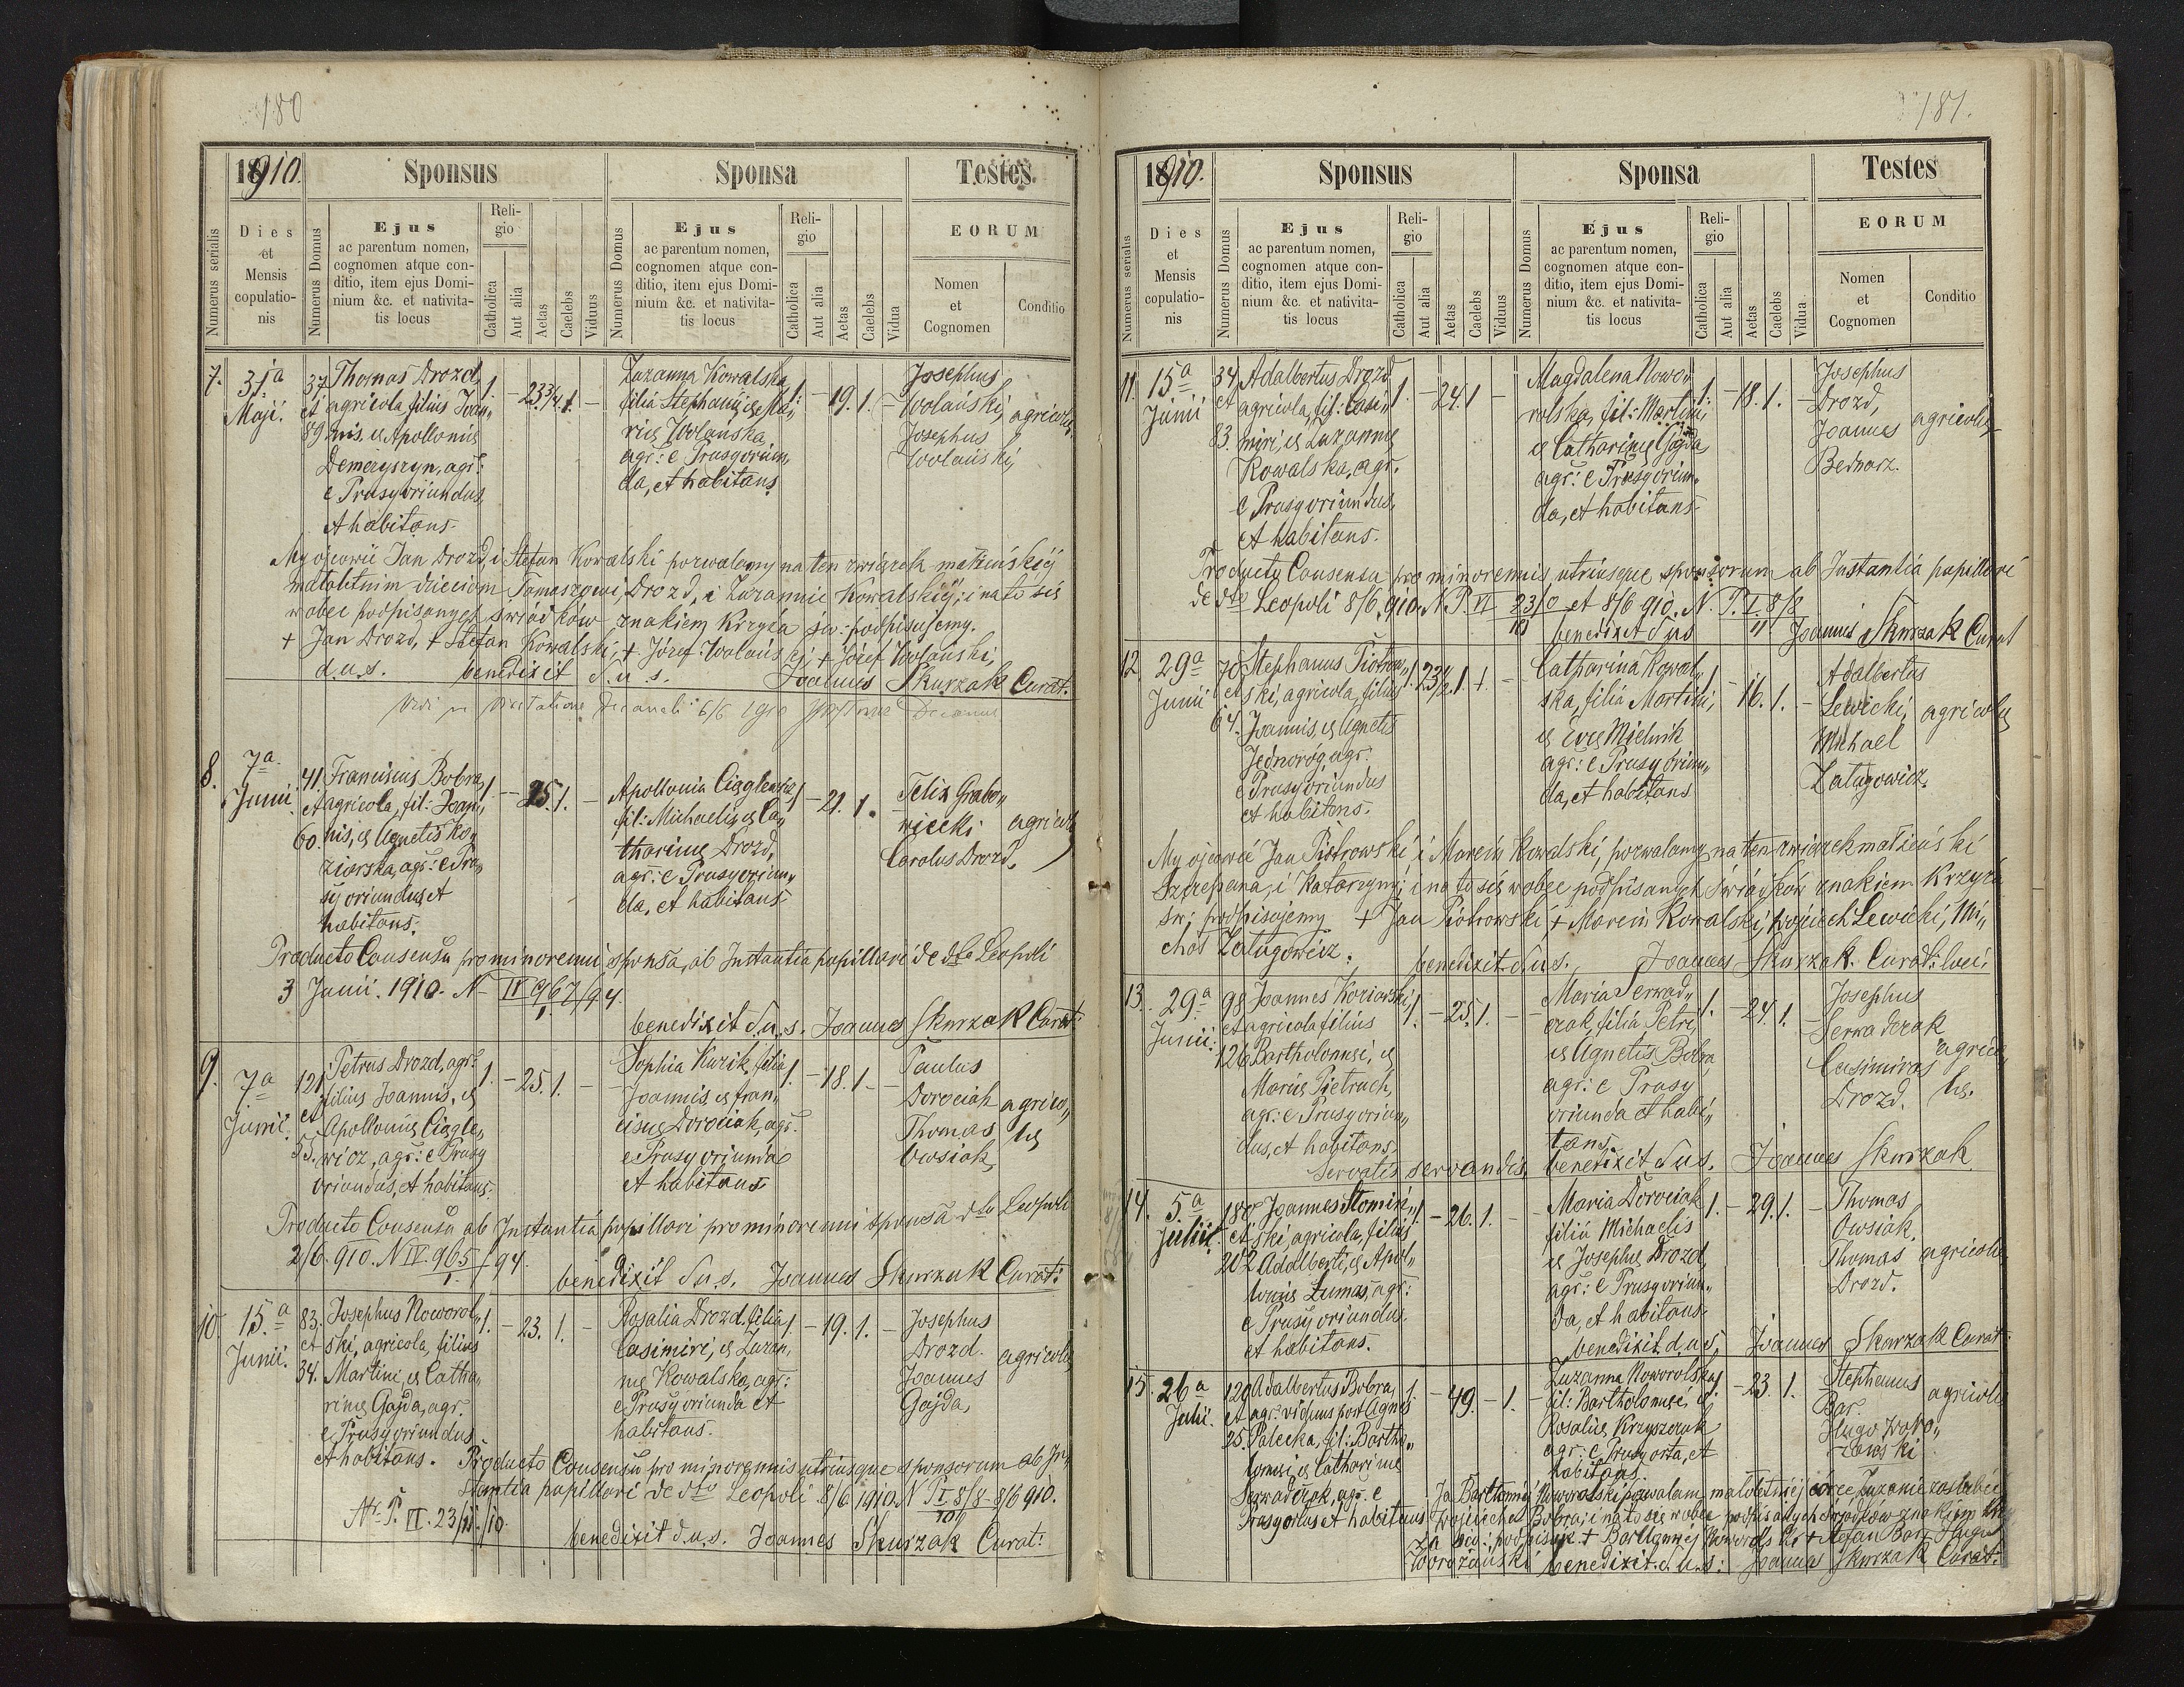 180
1910.
Sponsus
Sponsa
Testes
Numerus serialis
Dies
et
Mensis
copulatio-
nis
Numerus Domus
Ejus
ac parentum nomen,
cognomen atque con-
ditio, item ejus Domi-
nium &c. et nativita-
tis locus
Reli-
gio
Catholica
Aut alia
Aetas
Caelebs
Viduus
Numerus Domus
Ejus
ac parentum nomen,
cognomen atque con-
ditio, item ejus Domi-
nium &c. et nativita-
tis locus
Reli-
gio
Catholica
Aut alia
Aetas
Caelebs
Vidua
EORUM
Nomen
et
Cognomen
Conditio
7.
31a
Maji.
37
et
89
Thomas Drozd,
agricola, filius Joan„
nis, et Apolloniæ
Demczyszyn, agr:
e Prusy oriundus,
et habitans.
1. - 23 3/4 1. -
Zuzanna Kowalska
filia Stephani, et Ma„
riæ Wolańska,
agr: e Prusy oriun„
da, et habitans
1. - 19. 1. -
Josephus
Wolański,
Josephus
Wolański,
agricolæ
My ojcowie Jan Drozd, i Stefan Kowalski pozwalamy na ten związek małżeńskij
małoletnim dzieciom Tomaszowi Drozd, i Zuzannie Kowalskiej; i na to się
wobec podpisanych świadków znakiem Krzyża św: podpisujemy.
+ Jan Drozd, + Stefan Kowalski, + Józef Wolański + Józef Wolański,
d.u.s. benedixit d.u.s. Joannes Skurzak Curat:
Vidi in Visitatione Decanali 6/6 1910 Decanus
8.
7a
Junii.
41.
et
60.
Franciscus Bobra,
agricola, fil: Joan„
nis, et Agnetis Ko„
ziorska, agr: e Pru„
sy oriundus, et
habitans.
1 - 25. 1. -
Apollonia Cięglewicz
fil: Michaelis, et Ca„
tharinæ Drozd,
agr: e Prusy oriun„
da, et habitans
1 - 21. 1.
Felix Grabo„
wiecki
Carolus Drozd.
agricolæ
Producto Consensu pro minorenni sponsa, ab Instantia pupillari de dto Leopoli
3 Junii. 1910. N IV 967/94.
1.
benedixit d.u.s. Joannes Skurzak Curat:
9.
7a
Junii.
121
et
55.
Petrus Drozd, agr:
filius Joannis, et
Apolloniæ Cięgle„
wicz, agr: e Prusy
oriundus, et habitans.
1. - 25. 1. -
Sophia Kurik, filia
Joannis, et Fran„
ciscæ Dorociak, agr:
e Prusy oriunda
et habitans
1. - 18. 1 -
Paulus
Dorociak
Thomas
Owsiak,
agrico„
læ
Producto Consensu ab Instantia pupillari pro minorenni sponsa dto Leopoli
2/6. 910. N IV. 965/94.
1.
benedixit d.u.s. Joannes Skurzak Curat:
10.
15.a
Junii.
83.
et
34.
Josephus Noworol„
ski, agricola, filius
Martini, et Catha„
rinæ Gajda, agr:
e Prusy oriundus
et habitans.
1. - 23. 1. -
Rosalia Drozd, filia
Casimiri, et Zuzan„
næ Kowalska, agr:
e Prusy oriunda et
habitans.
1 - 19. 1. -
Josephus
Drozd.
Joannes
Gajda,
agricolæ
Producto Consensu pro minorennis utriusque sponsorum ab In„
stantia pupillari de dto Leopoli 8/6 1910. N P I. 8/8 - 8/6 910.
10
No P. VI. 23/11/10.
benedixit d.u.s. Joannes Skurzak Curat:
181.
1910.
Sponsus
Sponsa
Testes
Numerus serialis
Dies
et
Mensis
copulatio-
nis
Numerus Domus
Ejus
ac parentum nomen,
cognomen atque con-
ditio, item ejus Domi-
nium &c. et nativita-
tis locus
Reli-
gio
Catholica
Aut alia
Aetas
Caelebs
Viduus
Numerus Domus
Ejus
ac parentum nomen,
cognomen atque con-
ditio, item ejus Domi-
nium &c. et nativita-
tis locus
Reli-
gio
Catholica
Aut alia
Aetas
Caelebs
Vidua
EORUM
Nomen
et
Cognomen
Conditio
11.
15a
Junii
34
et
83.
Adalbertus Drozd
agricola, fil: Casi„
miri, et Zuzannæ
Kowalska, agr.
e Prusy oriundus,
et habitans.
1. - 24. 1 -
Magdalena Nowo„
rolska, fil: Martini,
et Catharinæ Gajda
agr: e Prusy oriun„
da, et habitans
1. - 18. 1. -
Josephus
Drozd,
Joannes
Bednarz.
agricolæ
Producto Consensu pro minorennis utriusque sponsorum ab Instantia pupillari
de dto Leopoli 8/6. 910. N P. VI 23/10 et 8/6 910. N. P. I. 8/8
benedixit dus Joannes Skurzak Curat
12
29a
Junii
70
et
64.
Stephanus Piotrow„
ski, agricola, filius
Joannis, et Agnetis
Jednoróg, agr:
e Prusy oriundus
et habitans.
1. 23 1/2. 1. -
Catharina Kowal„
ska, filia Martini,
et Evæ Mielnik
agr: e Prusy oriun„
da, et habitans
1 - 16. 1. -
Adalbertus
Lewicki,
Michael
Załugowicz.
agricolæ
My ojcowie Jan Piotrowski i Marcin Kowalski, pozwalamy na ten związek małżeński
Szczepana, i Katarzyny; i na to się wobec podpisanych świadków znakiem Krzyża
św: podpisujemy + Jan Piotrowski + Marcin Kowalski, Wojciech Lewicki, Mi„
chał Załugowicz. benedixit d.u.s. Joannes Skurzak. Curat: loci.
13.
29a
Junii:
98
et
126
Joannes Koziorski,
agricola filius
Bartholomæi, et
Mariæ Pietruch,
agr: e Prusy oriun„
dus, et habitans
1. - 25. 1. -
Maria Serwad„
czak, filia Petri,
et Agnetis Bobra,
agr: e Prusy
oriunda et habi„
tans
1. - 24. 1. -
Josephus
Serwadczak
Casimirus
Drozd.
agrico„
læ.
Servatis servandis, benedixit dus. Joannes Skurzak
14.
5.a
Julii.
180
et
202
Joannes Słomiń„
ski, agricola, filius
Adalberti, et Apol„
loniæ Łumas, agr:
e Prusy oriundus
et habitans.
1 - 26. 1. -
Maria Dorociak
filia Michaelis
et Josephæ Drozd,
agr: e Prusy oriun„
da, et habitans.
1. - 29. 1. -
Thomas
Owsiak,
Thomas
Drozd.
agricolæ
benedixit d.u.s. Joannes Skurzak Curat:
15.
26a
Julii.
120
et
25.
Adalbertus Bobra,
agr. viduus post Agnes
Palecka, fil: Bartho„
lomæi, et Catharinæ
Serwadczak, agr: e
Prusy ortus et habitans
1. - 49. - 1. -
Zuzanna Noworolska,
fil: Bartholomæi, et
Rosaliæ Krzyszczuk
agr: e Prusy orta, et
habitans.
1 - 23. 1. -
Stephanus
Bar
Hugo Woro„
żański
agricolæ
Ja Bartłomiej Noworolski pozwalam małoletniej córce Zuzannie zaślubić
Wojciecha Bobra; i na to się wobec podpisanych świadków znakiem krzy„
ża św: podpisuję + Bartłomiej Noworolski + Stefan Bar, Hugo
Worożański benedixit d.u.s: Joannes Skurzak Curat: